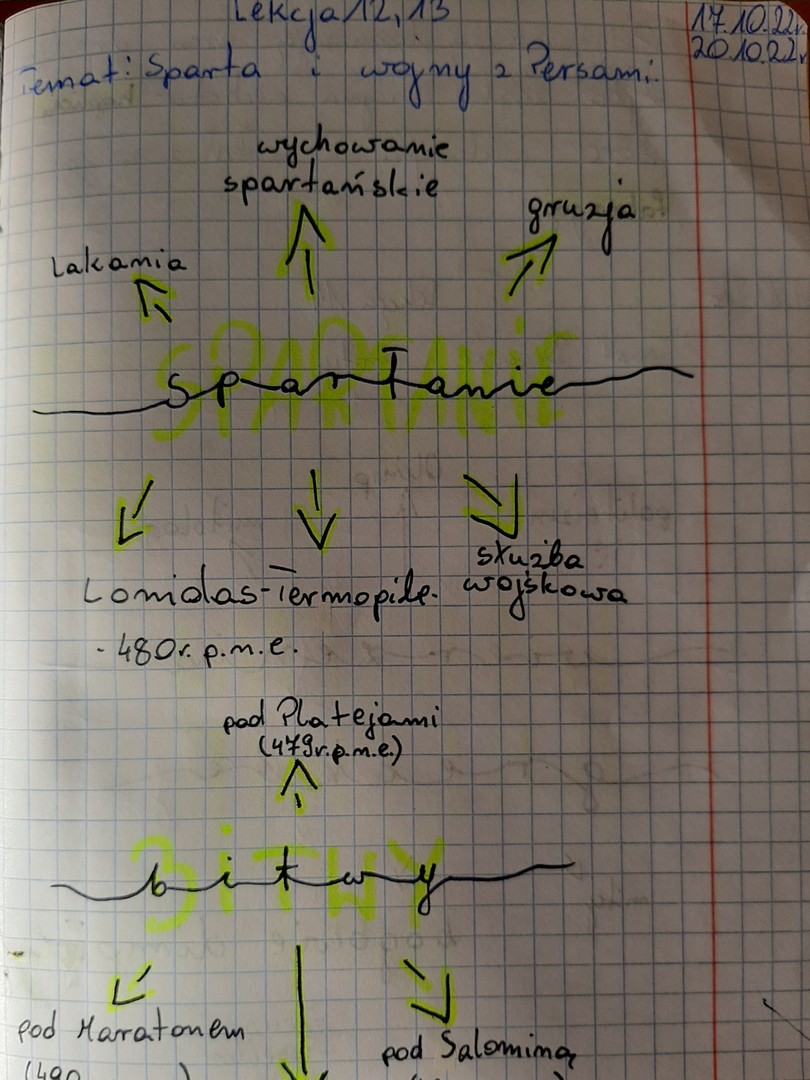 Lekcja 12, 13
17.10.22r.
20.10.22r.
Temat: Sparta i wojny z Persami.
wychowanie
spartańskie
gruzja
Lakamia
SPARTANIE
Spartanie
służba
wojskowa
Lonidas-Termopile.
- 480r. p.m.e.
pod Platejami
(479r.p.m.e.)
BITWY
bitwy
pod Maratonem
pod Salominą
(490